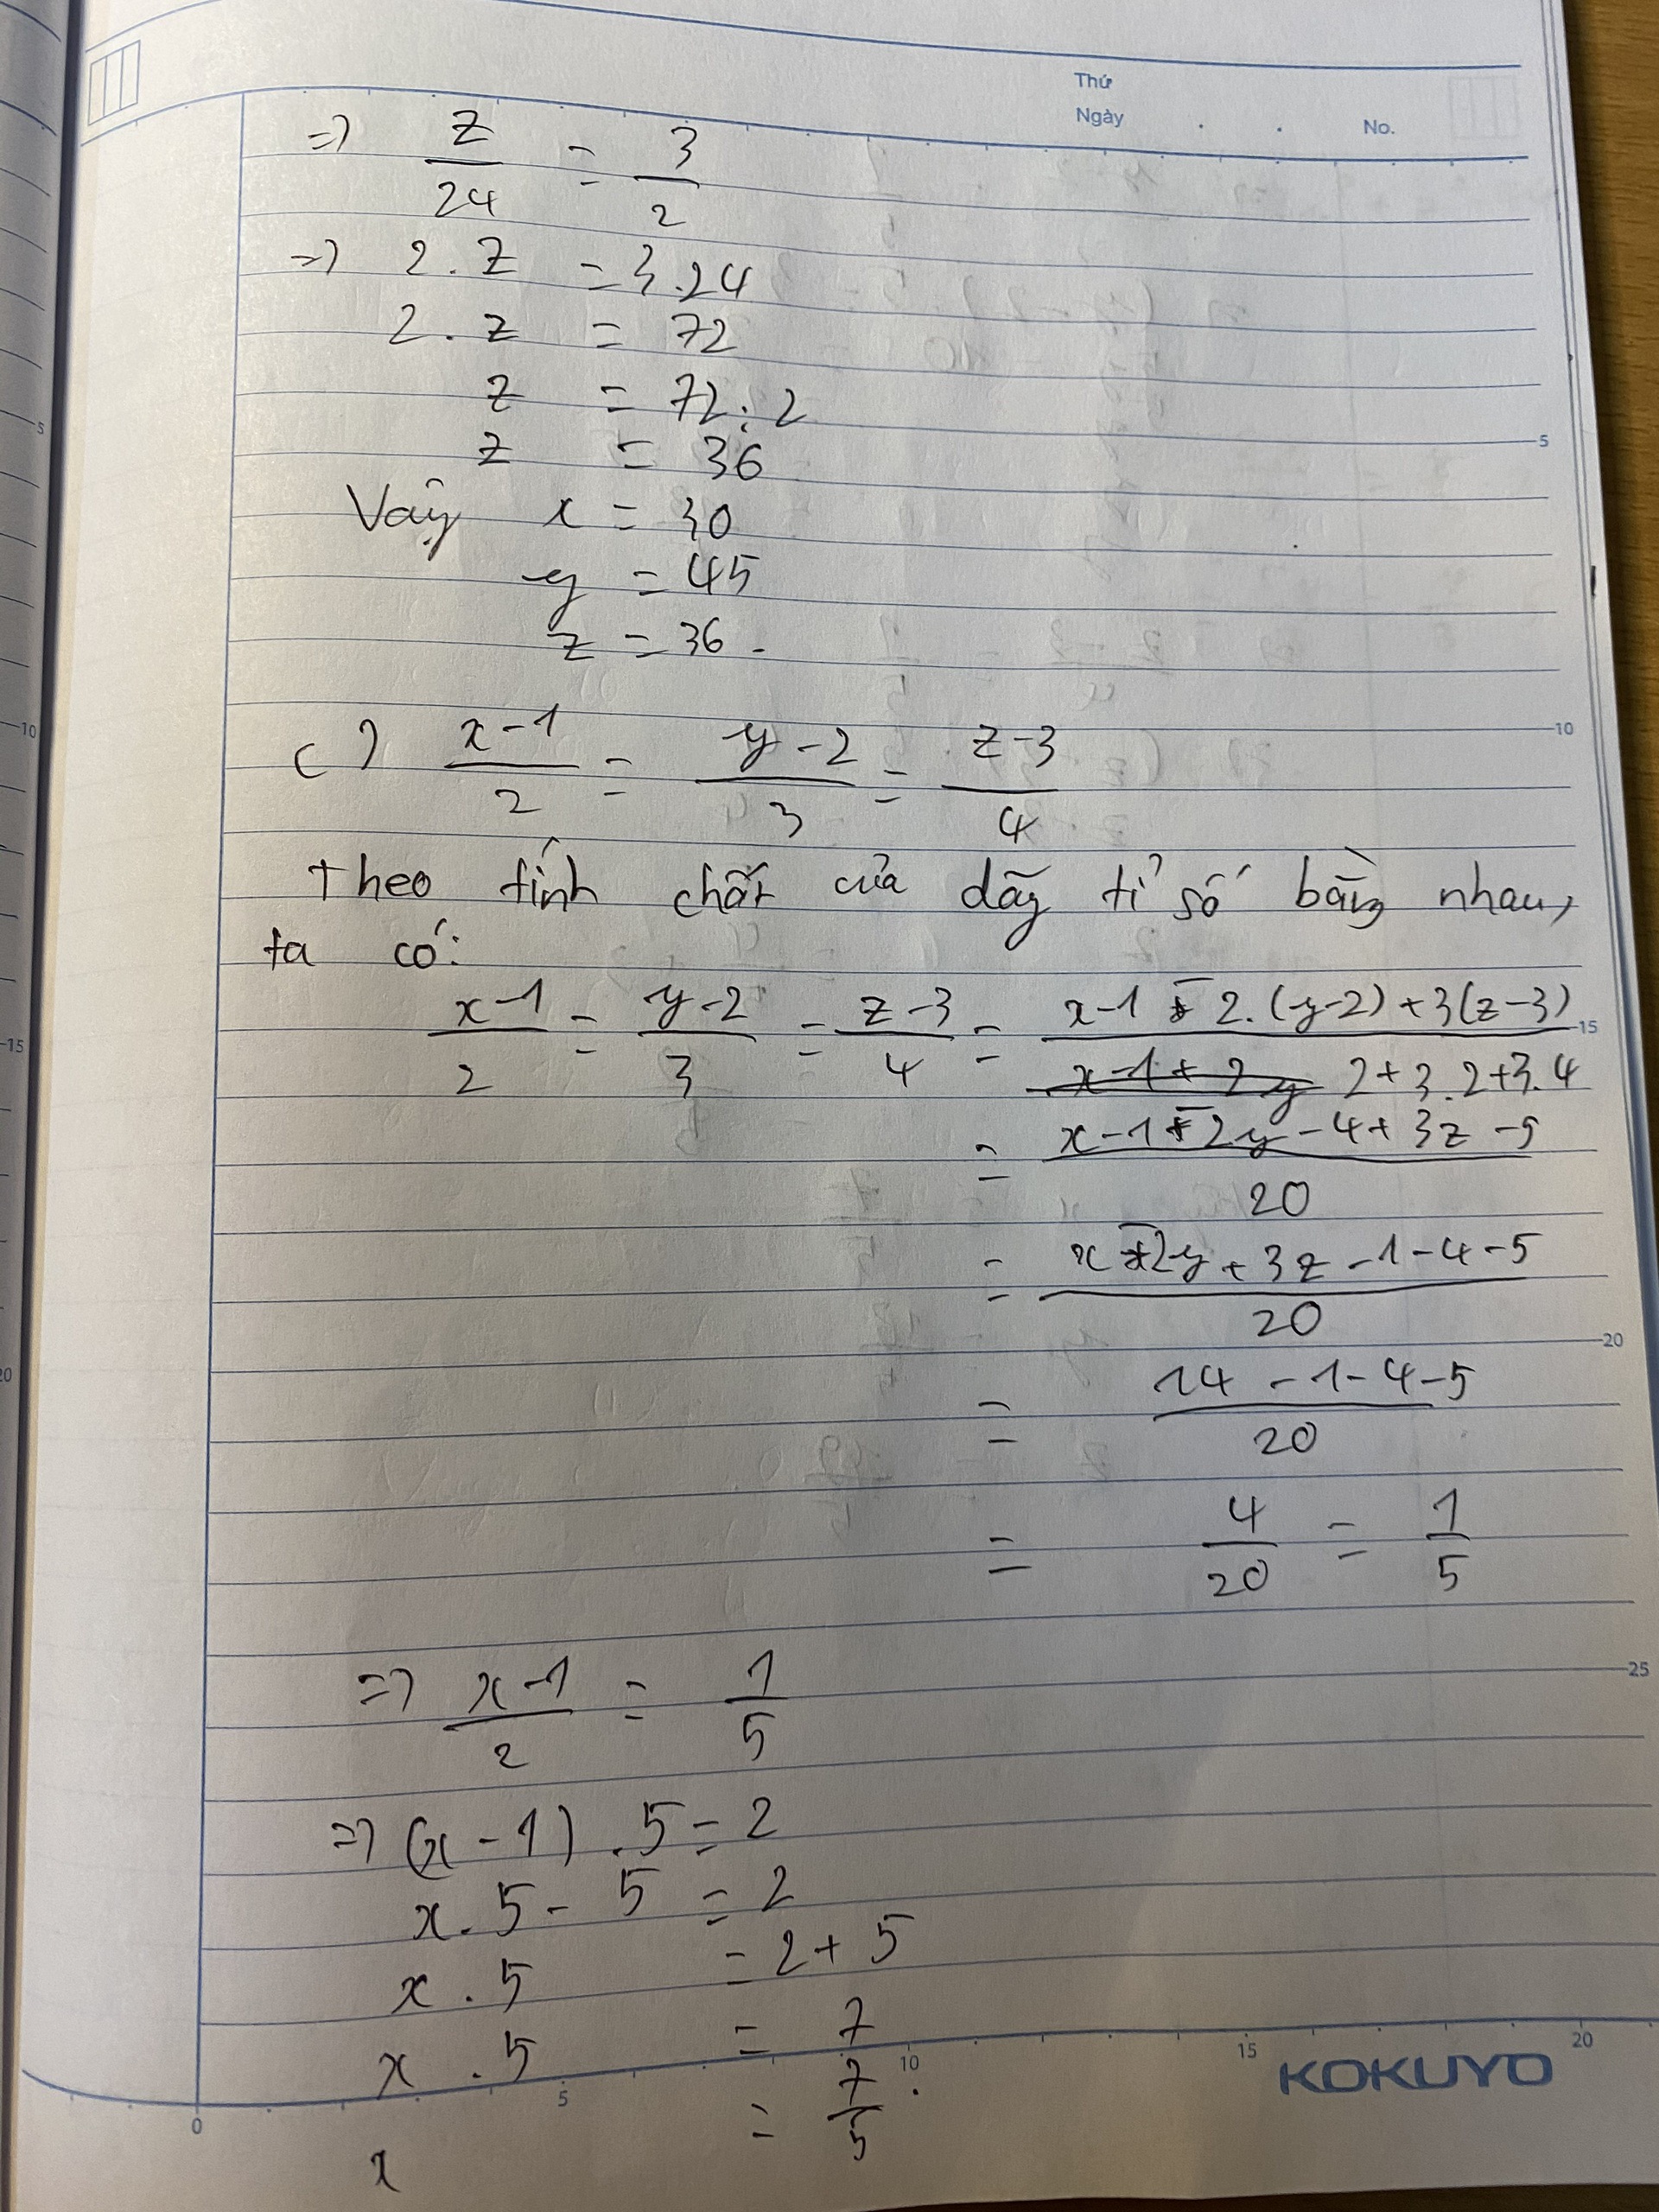 Thứ
Ngày . . No.
=> z/24 = 3/2
=> 2 . z = 3.24
2 . z = 72
z = 72 : 2
z = 36
Vậy x = 30
y = 45
z = 36.
c) x-1/2 = y-2/3 = z-3/4
Theo tính chất của dãy tỉ số bằng nhau,
ta có:
x-1/2 = y-2/3 = z-3/4 = x-1 - 2.(y-2) + 3(z-3)/2+3.2+3.4
= x-1-2y-4+3z-5/20
= x-2y+3z-1-4-5/20
= 14-1-4-5/20
= 4/20 = 1/5
=> x-1/2 = 1/5
=> (x-1) . 5 = 2
x . 5 - 5 = 2
x . 5 = 2 + 5
x . 5 = 7
x = 7/5
5
10
15
20
25
0 5 10 15 20
KOKUYO